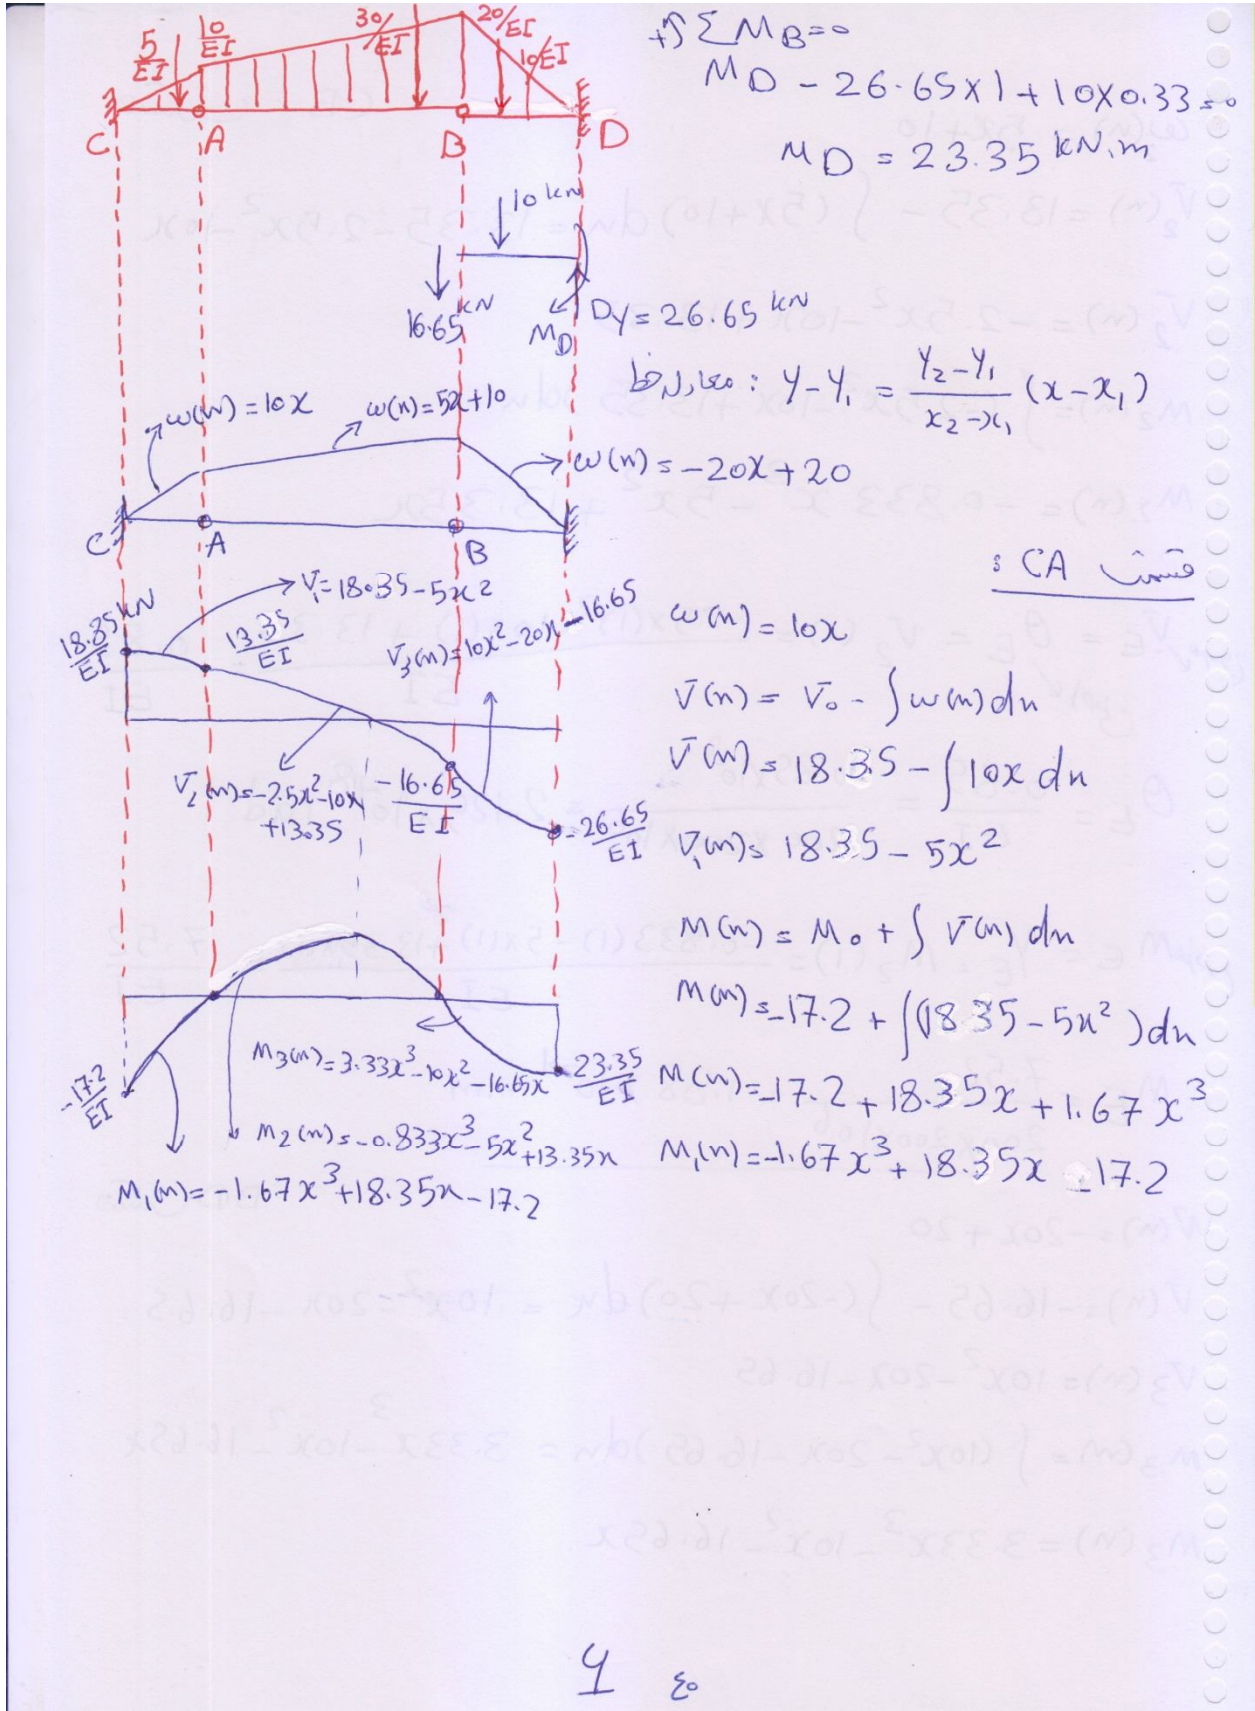 5/EI 10/EI 30/EI 20/EI 10/EI
C A B D
+↰ ΣM_B=0
M_D - 26.65×1 + 10×0.33 = 0
M_D = 23.35 kN.m
10 kN
16.65 kN
M_D
Dy = 26.65 kN
معادله خط : y-y₁ = (y₂-y₁)/(x₂-x₁) (x-x₁)
ω(x) = 10x
ω(x) = 5x+10
ω(x) = -20x+20
C A B
قسمت CA :
18.35 kN/EI
V₁ = 18.35-5x²
13.35/EI
V₃(x) = 10x²-20x-16.65
V₂(x) = -2.5x²-10x
+13.35
-16.65/EI
-26.65/EI
ω(x) = 10x
V(x) = V₀ - ∫ω(x)dx
V(x) = 18.35 - ∫10x dx
V₁(x) = 18.35 - 5x²
M(x) = M₀ + ∫V(x) dx
M(x) = -17.2 + ∫(18.35 - 5x²)dx
M(x) = -17.2 + 18.35x + 1.67x³
M₁(x) = -1.67x³ + 18.35x - 17.2
-17.2/EI
M₃(x) = 3.33x³-10x²-16.65x
-23.35/EI
M₂(x) = -0.833x³-5x²+13.35x
M₁(x) = -1.67x³+18.35x-17.2
4 ٤٠